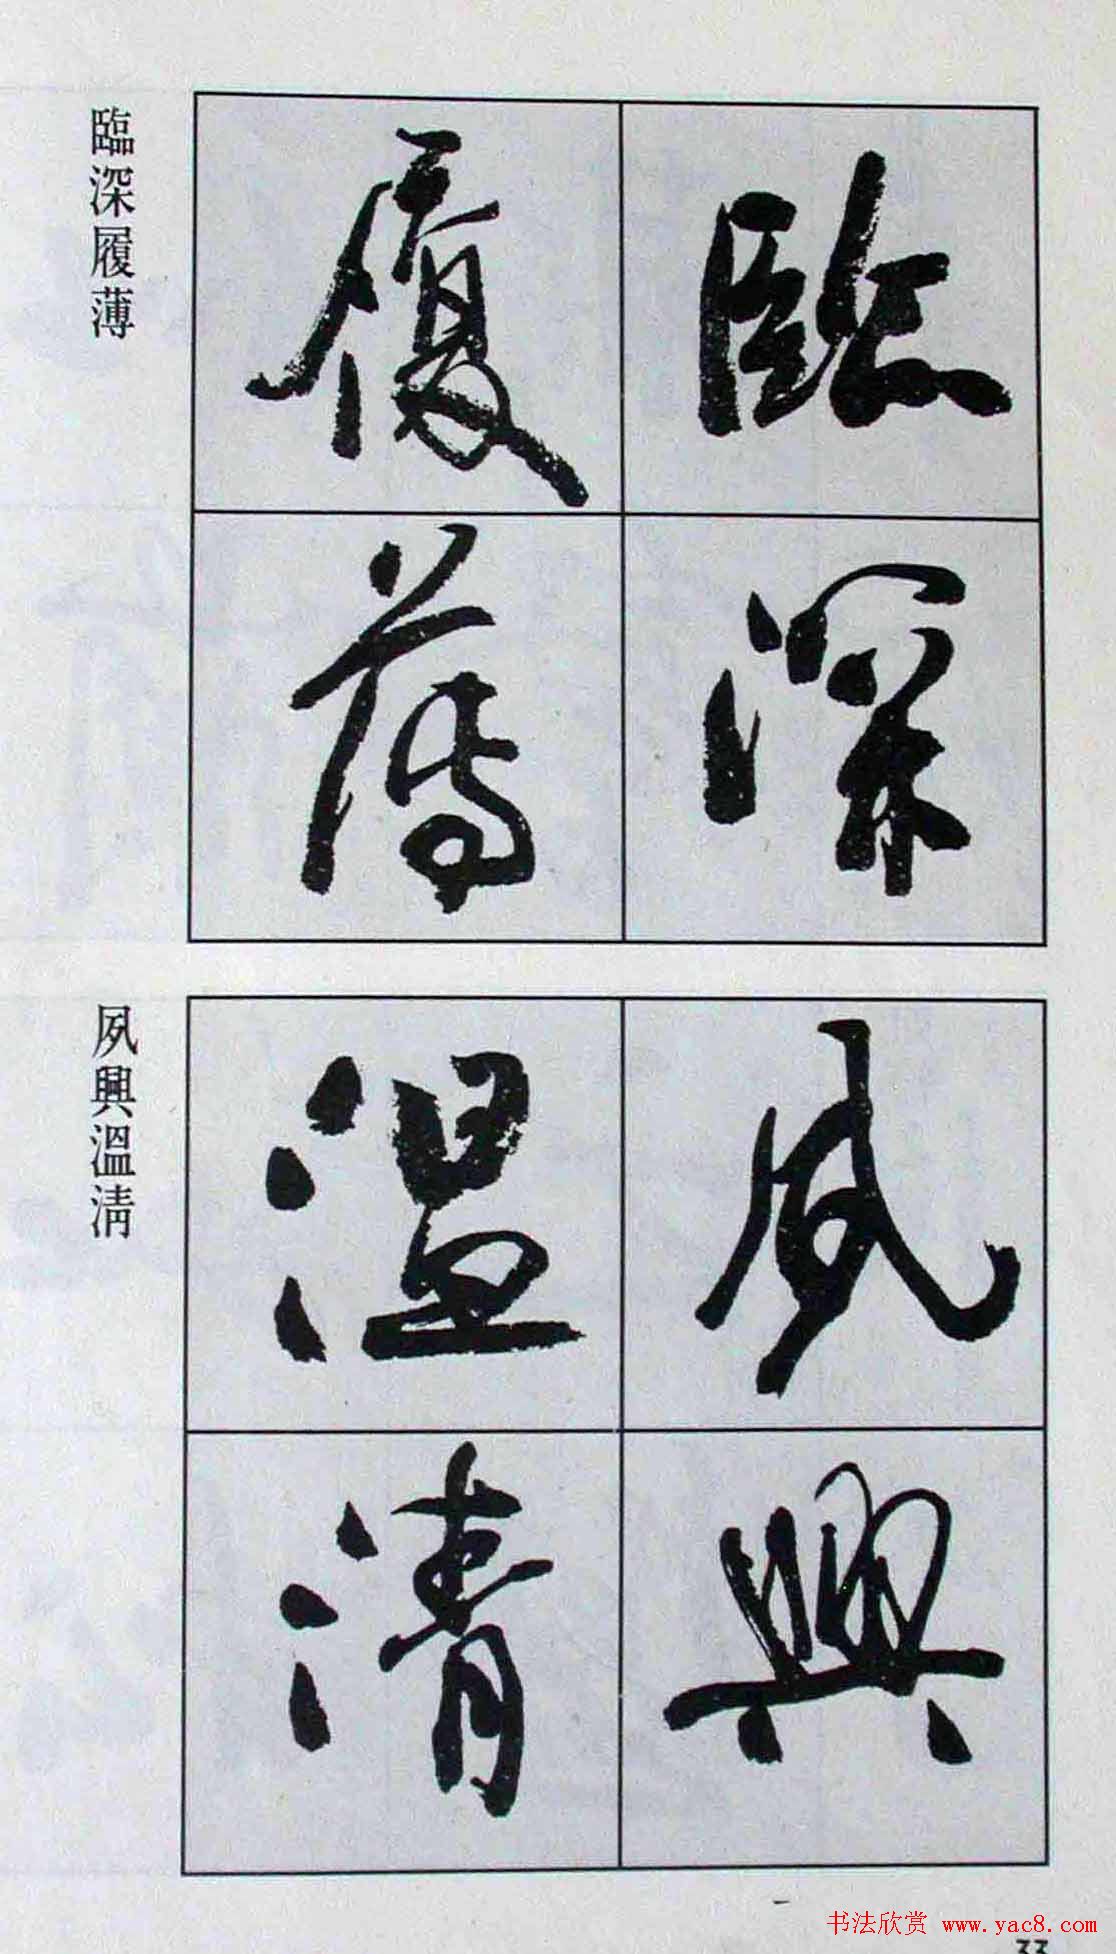 臨深
履薄
臨深履薄
夙興
溫清
夙興溫清
书法欣赏 www.yac8.com
33